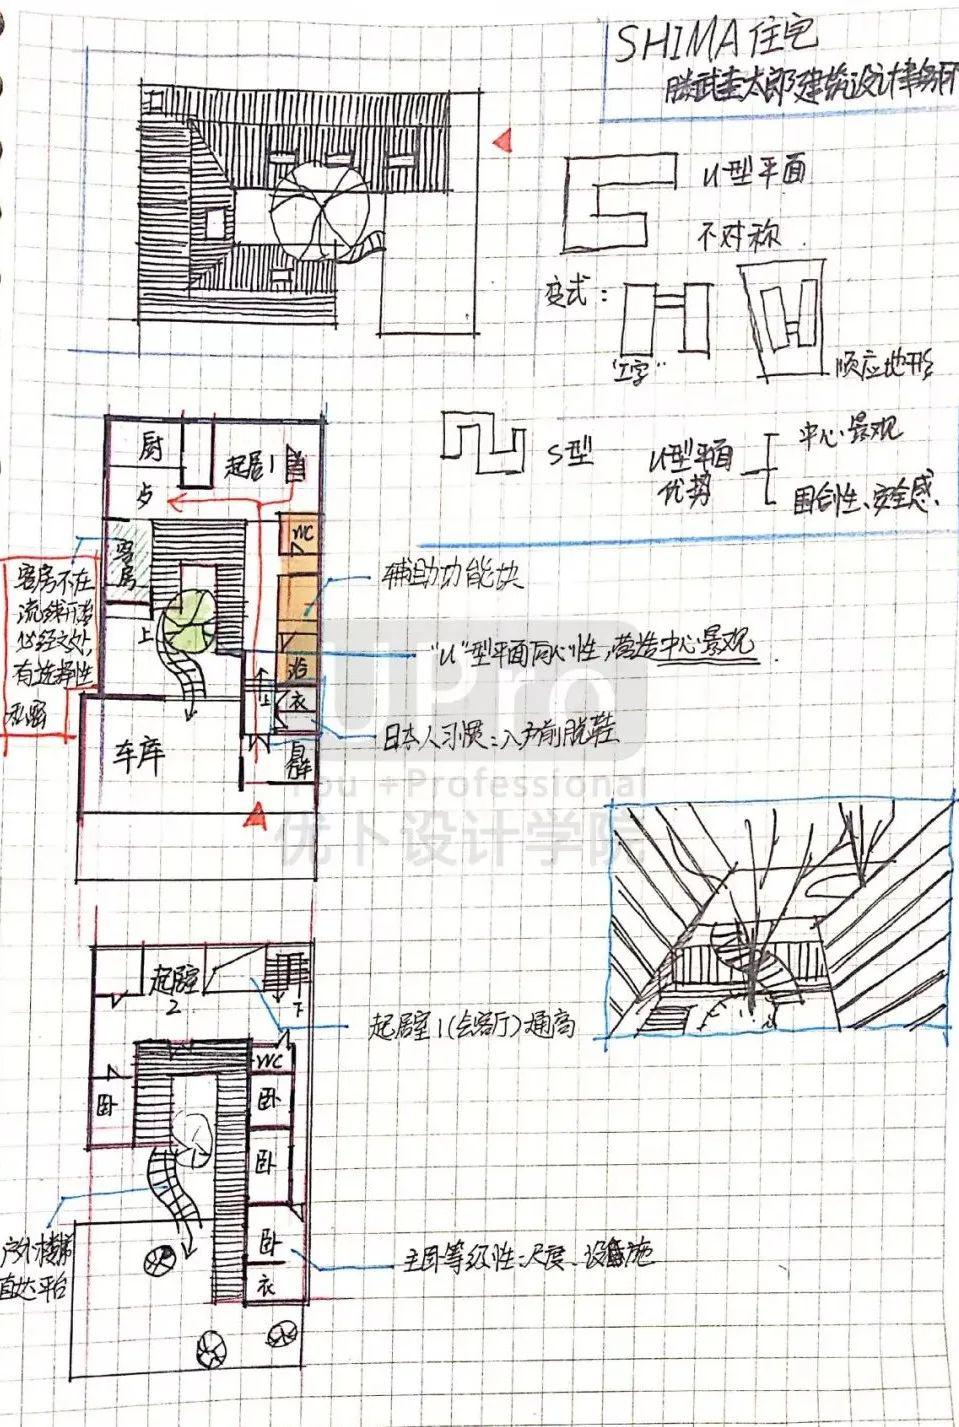 SHIMA 住宅
藤武圭太郎建筑设计事务所
U型平面
不对称
变式：
"工字"
顺应地形
S型
U型平面
优势
中心景观
围合性、安全感、
厨
起居1
WC
客房
客房不在
流线开端
必经之处,
有选择性
私密
上
浴
上
衣
车库
辅助功能块
"U"型平面向心性,营造中心景观
日本人习惯：入户前脱鞋
UPro
You +Professional
优卜设计学院
起居室
2
下
起居室1(会客厅)通高
WC
卧
卧
卧
卧
衣
户外楼梯
直达平台
主卧等级性：尺度、设施